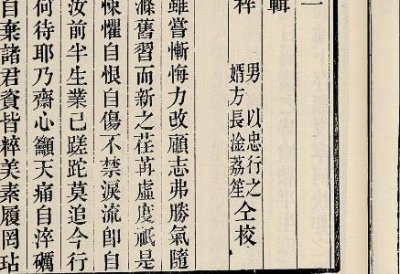 二
輯
梓
男以忠行之
婿方長淦荔笙仝校
雖嘗慚悔力改顧志弗勝氣隨
滌舊習而新之荏苒虛度祇是
悚懼自恨自傷不禁淚流即自
汝前半生業已蹉跎莫追今行
何待耶乃齋心籲天痛自淬礪
自棄諸君資皆粹美素履罔玷